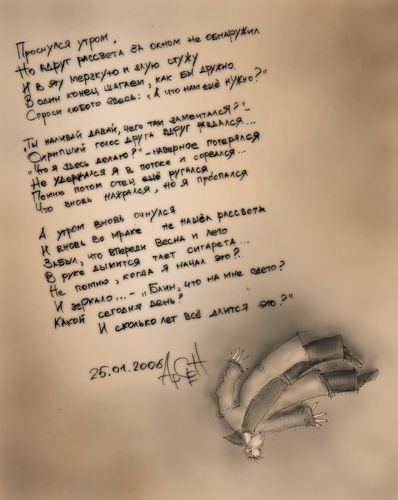 Проснулся утром,
Но вдруг рассвета за окном не обнаружил
И в эту мерзкую и злую стужу
В один конец шагаем, как бы дружно.
Спроси любого здесь: „А что нам ещё нужно?"
"Ты наливай давай, чего там замечтался?" -
Охрипший голос друга вдруг раздался...
"Что я здесь делаю?" - наверное потерялся
Не удержался я в потоке и сорвался...
Помню потом отец ещё ругался
Что вновь нажрался, но я проспался
А утром вновь очнулся
И вновь во мраке не нашёл рассвета
Забыл, что впереди весна и лето
В руке дымится тает сигарета...
Не помню, когда я начал это?
И зеркало... - „Блин, что на мне одето?
Какой сегодня день?
И сколько лет всё длится это?"
25.01.2006 АрСеН